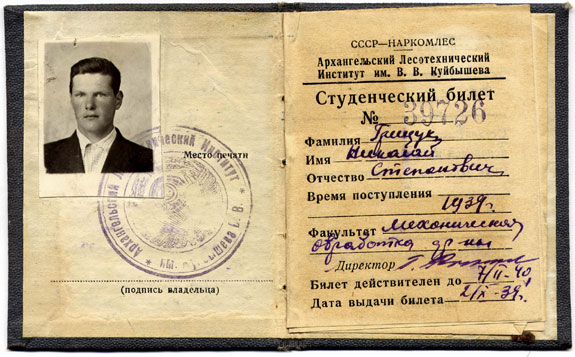 Место печати
(подпись владельца)
СССР—НАРКОМЛЕС
Архангельский Лесотехнический
Институт им. В. В. Куйбышева
Студенческий билет
№ 39726
Фамилия Грицук
Имя Николай
Отчество Степанович
Время поступления
1939г.
Факультет Механическая
обработка др-ны
Директор
Билет действителен до 7/II-40
Дата выдачи билета 2/X-39г.